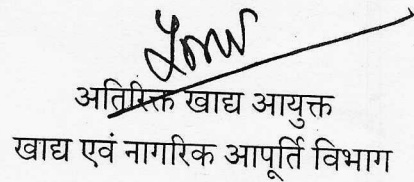 अतिरिक्त खाद्य आयुक्त
खाद्य एवं नागरिक आपूर्ति विभाग